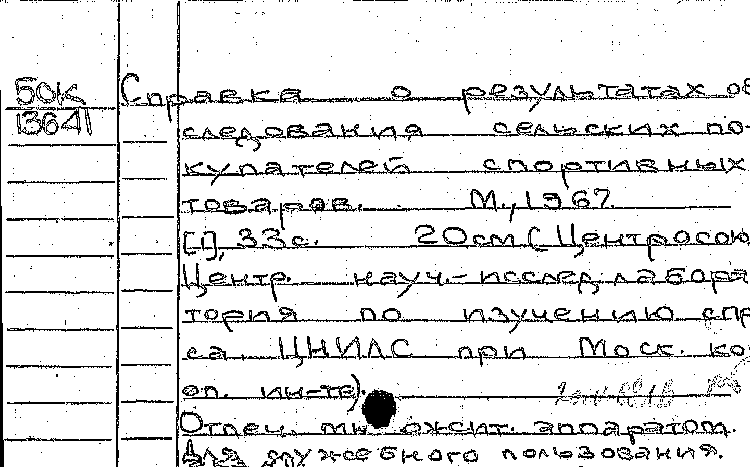 50К Справка о результатах об
13641 следования сельских по-
купателей спортивных
товаров. М., 1967.
[1], 33 с. 20 см (Центросою
Центр. науч.-исслед. лабора
тория по изучению спр
са. ЦНИЛС при Моск. ко
оп. ин-те).
Отпеч. ожит. аппаратом.
Для служебного пользования.